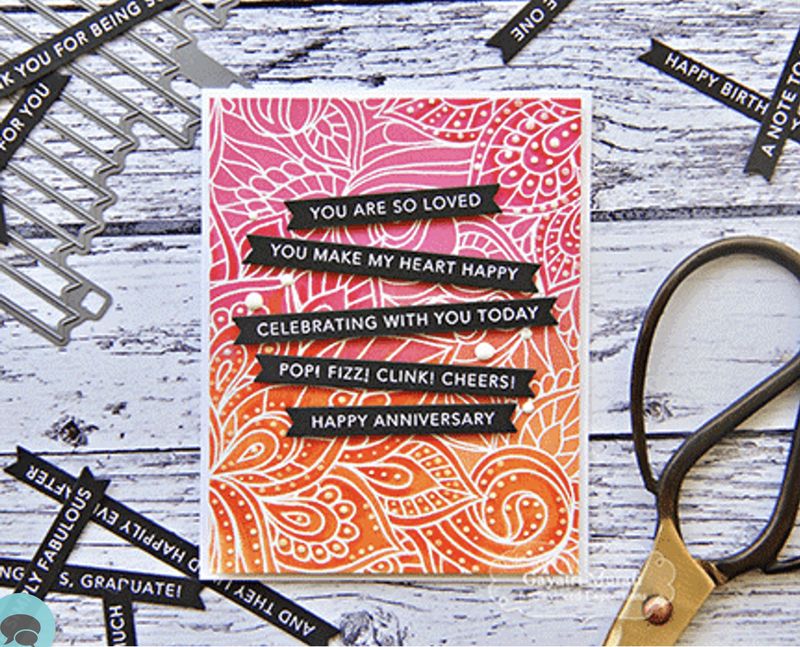 YOU FOR BEING
FOR YOU
ONE
HAPPY BIRTH
A NOTE TO
YOU ARE SO LOVED
YOU MAKE MY HEART HAPPY
CELEBRATING WITH YOU TODAY
POP! FIZZ! CLINK! CHEERS!
HAPPY ANNIVERSARY
AND THEY LI D HAPPILY EV AFTER
LY FABULOUS
S, GRADUATE!
UCH
Gayatri Murali